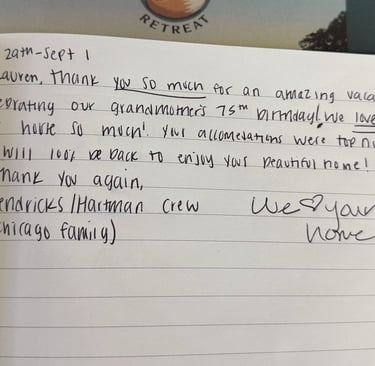 RETREAT
29th - Sept 1
auren, Thank you so much for an amazing vaca
ebrating our grandmother's 75th birthday! We love
r home so much! Your accomodations were top no
will 100% be back to enjoy your beautiful home!
hank you again,
endricks/Hartman crew
hicago family)
We ♡ your
home